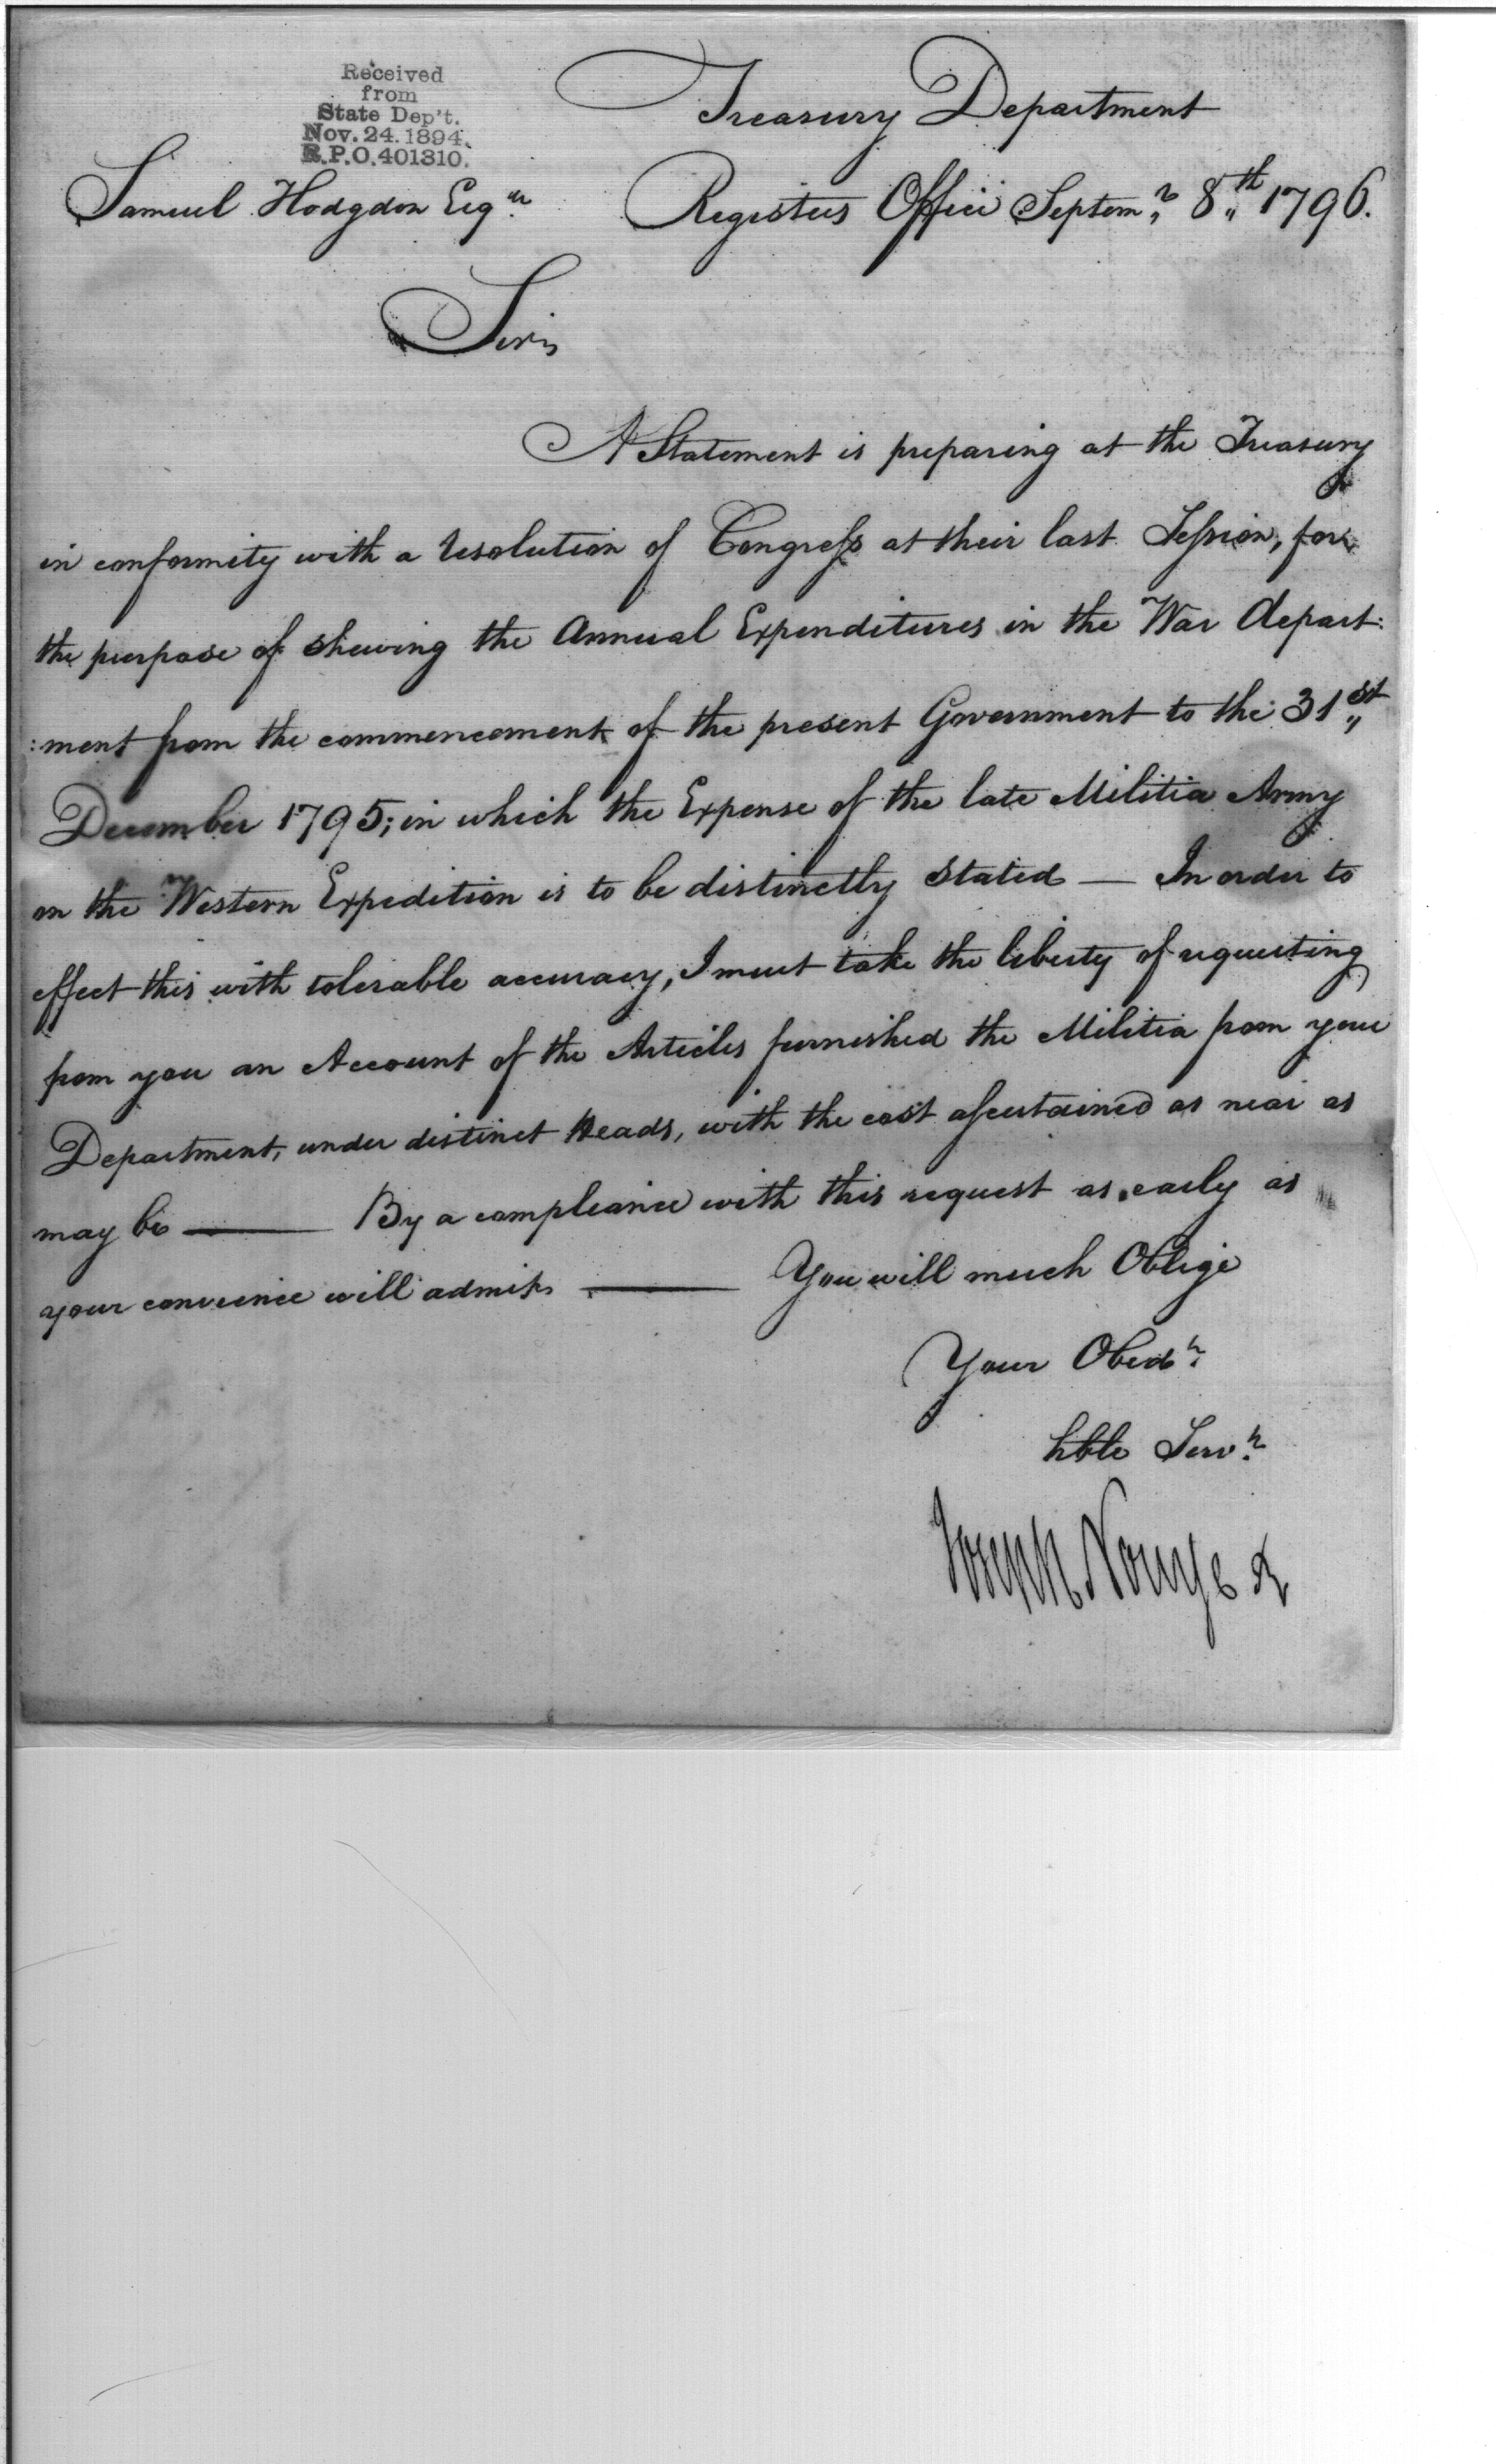 Received
from
State Dep't.
Nov. 24. 1894.
R.P.O. 401310.
Treasury Department
Samuel Hodgdon Esqr.
Registers Office Septemr. 8th 1796.
Sir,
A Statement is preparing at the Treasury
in conformity with a resolution of Congress at their last Session, for
the purpose of shewing the Annual Expenditures in the War depart:
:ment from the commencement of the present Government to the 31st
December 1795; in which the Expense of the late Militia Army
on the Western Expedition is to be distinctly stated — In order to
effect this with tolerable accuracy, I must take the liberty of requesting
from you an Account of the Articles furnished the Militia from your
Department, under distinct Heads, with the cost ascertained as near as
may be — By a compliance with this request as early as
your convience will admit, — You will much Oblige
Your Obedt.
hble Servt.
Joseph Nourse R